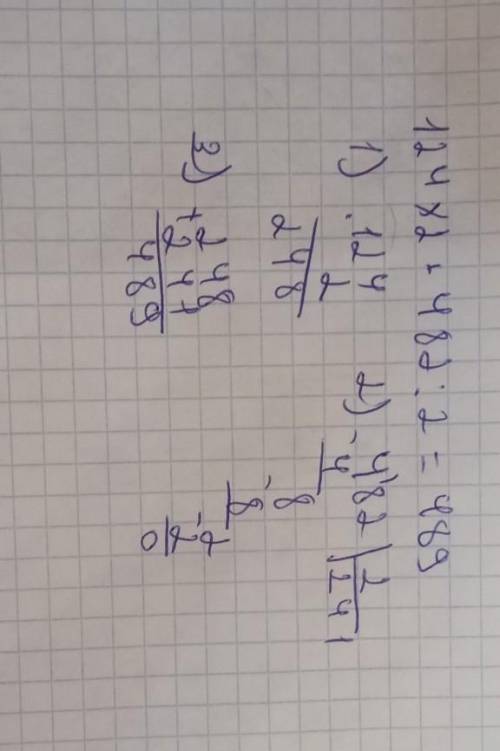 124 × 2 + 482 : 2 = 489
1) . 124
2
248
2) - 482 | 2
4 | 241
- 8
8
- 2
2
0
3) + 248
241
489